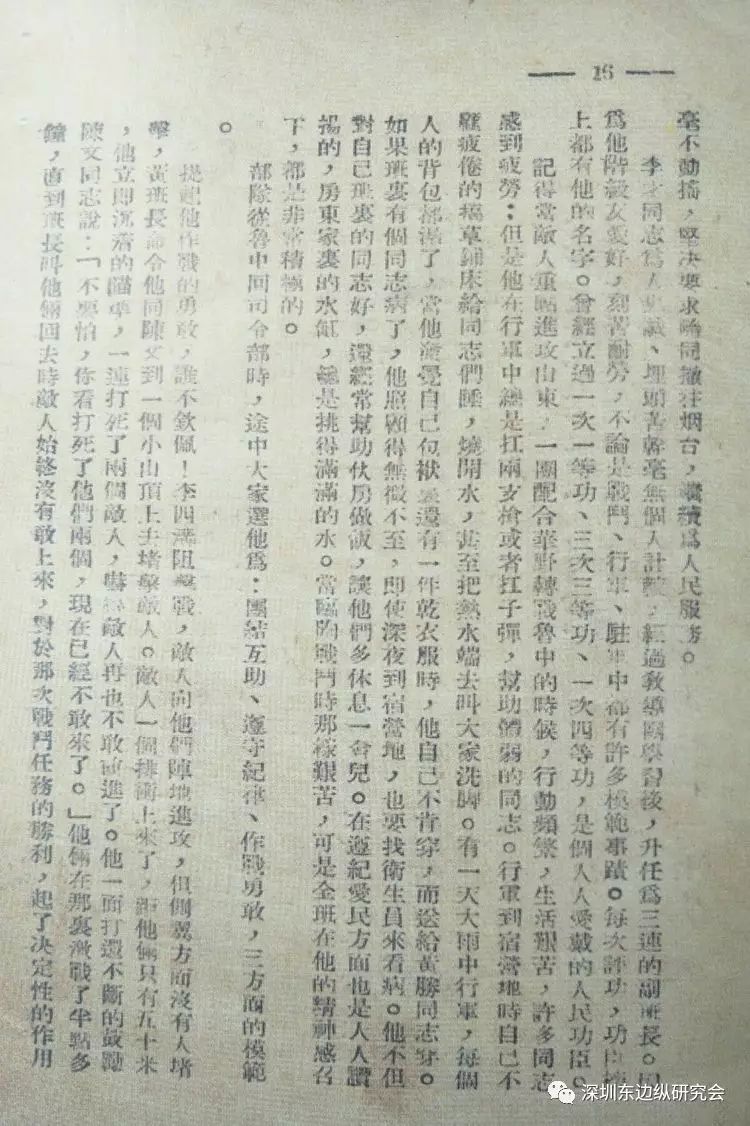 — 16 —
毫不動搖，堅决要求略同撤往烟台，繼續爲人民服務。
李才同志爲人忠誠、埋頭苦幹毫無個人計較，經過敎導團學習後，升任爲三連的副班長。因
爲他階級友愛好，刻苦耐勞，不論是戰鬥、行軍、駐軍中都有許多模範事蹟。每次評功，功臣榜
上都有他的名字。曾經立過一次一等功、三次三等功、一次四等功，是個人人愛戴的人民功臣。
記得當敵人重點進攻山東，一團配合華野轉戰魯中的時候，行動頻繁，生活艱苦，許多同志
感到疲勞：但是他在行軍中總是扛兩支槍或者扛子彈，幫助體弱的同志。行軍到宿營地時自己不
顧疲倦的搞草鋪床給同志們睡，燒開水，甚至把熱水端去叫大家洗脚。有一天大雨中行軍，每個
人的背包都濕了，當他發覺自己包袱裏還有一件乾衣服時，他自己不肯穿，而送給黃勝同志穿。
如果班裏有個同志病了，他照顧得無微不至，即使深夜到宿營地，也要找衛生員來看病。他不但
對自己班裏的同志好，還經常幫助伙房做飯，讓他們多休息一會兒。在遵紀愛民方面也是人人讚
揚的，房東家裏的水缸，總是挑得滿滿的水。當臨朐戰鬥時那樣艱苦，可是全班在他的精神感召
下，都是非常積極的。
部隊從魯中回司令部時，途中大家選他爲：團結互助、遵守紀律、作戰勇敢，三方面的模範
。
提起他作戰的勇敢，誰不欽佩！李四滿阻擊戰，敵人向他們陣地進攻，但側翼方面沒有人堵
擊，黃班長命令他同陳文到一個小山頂上去堵擊敵人。敵人一個排衝上來了，距他倆只有五十米
，他立即沉着的瞄準，一連打死了兩個敵人，嚇得敵人再也不敢前進了。他一面打還不斷的鼓勵
陳文同志說：「不要怕，你看打死了他們兩個，現在已經不敢來了。」他倆在那裏激戰了半點多
鐘，直到班長叫他倆回去時敵人始終沒有敢上來，對於那次戰鬥任務的勝利，起了决定性的作用
深圳东边纵研究会